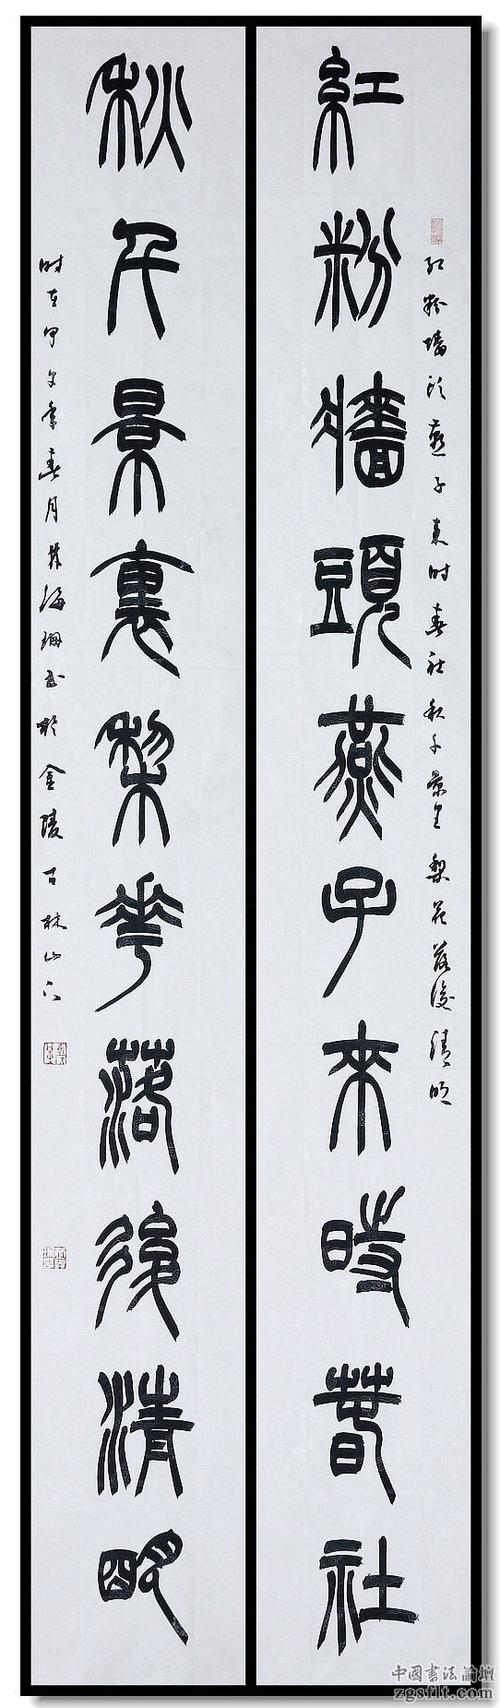 红粉墙头燕子来时春社秋千景里梨花落後清明
紅粉牆頭燕子來時春社
秋千景裏梨花落後清明
时在甲午年春月海珊书於金陵古林山下
中國書法論壇
zgsflt.com